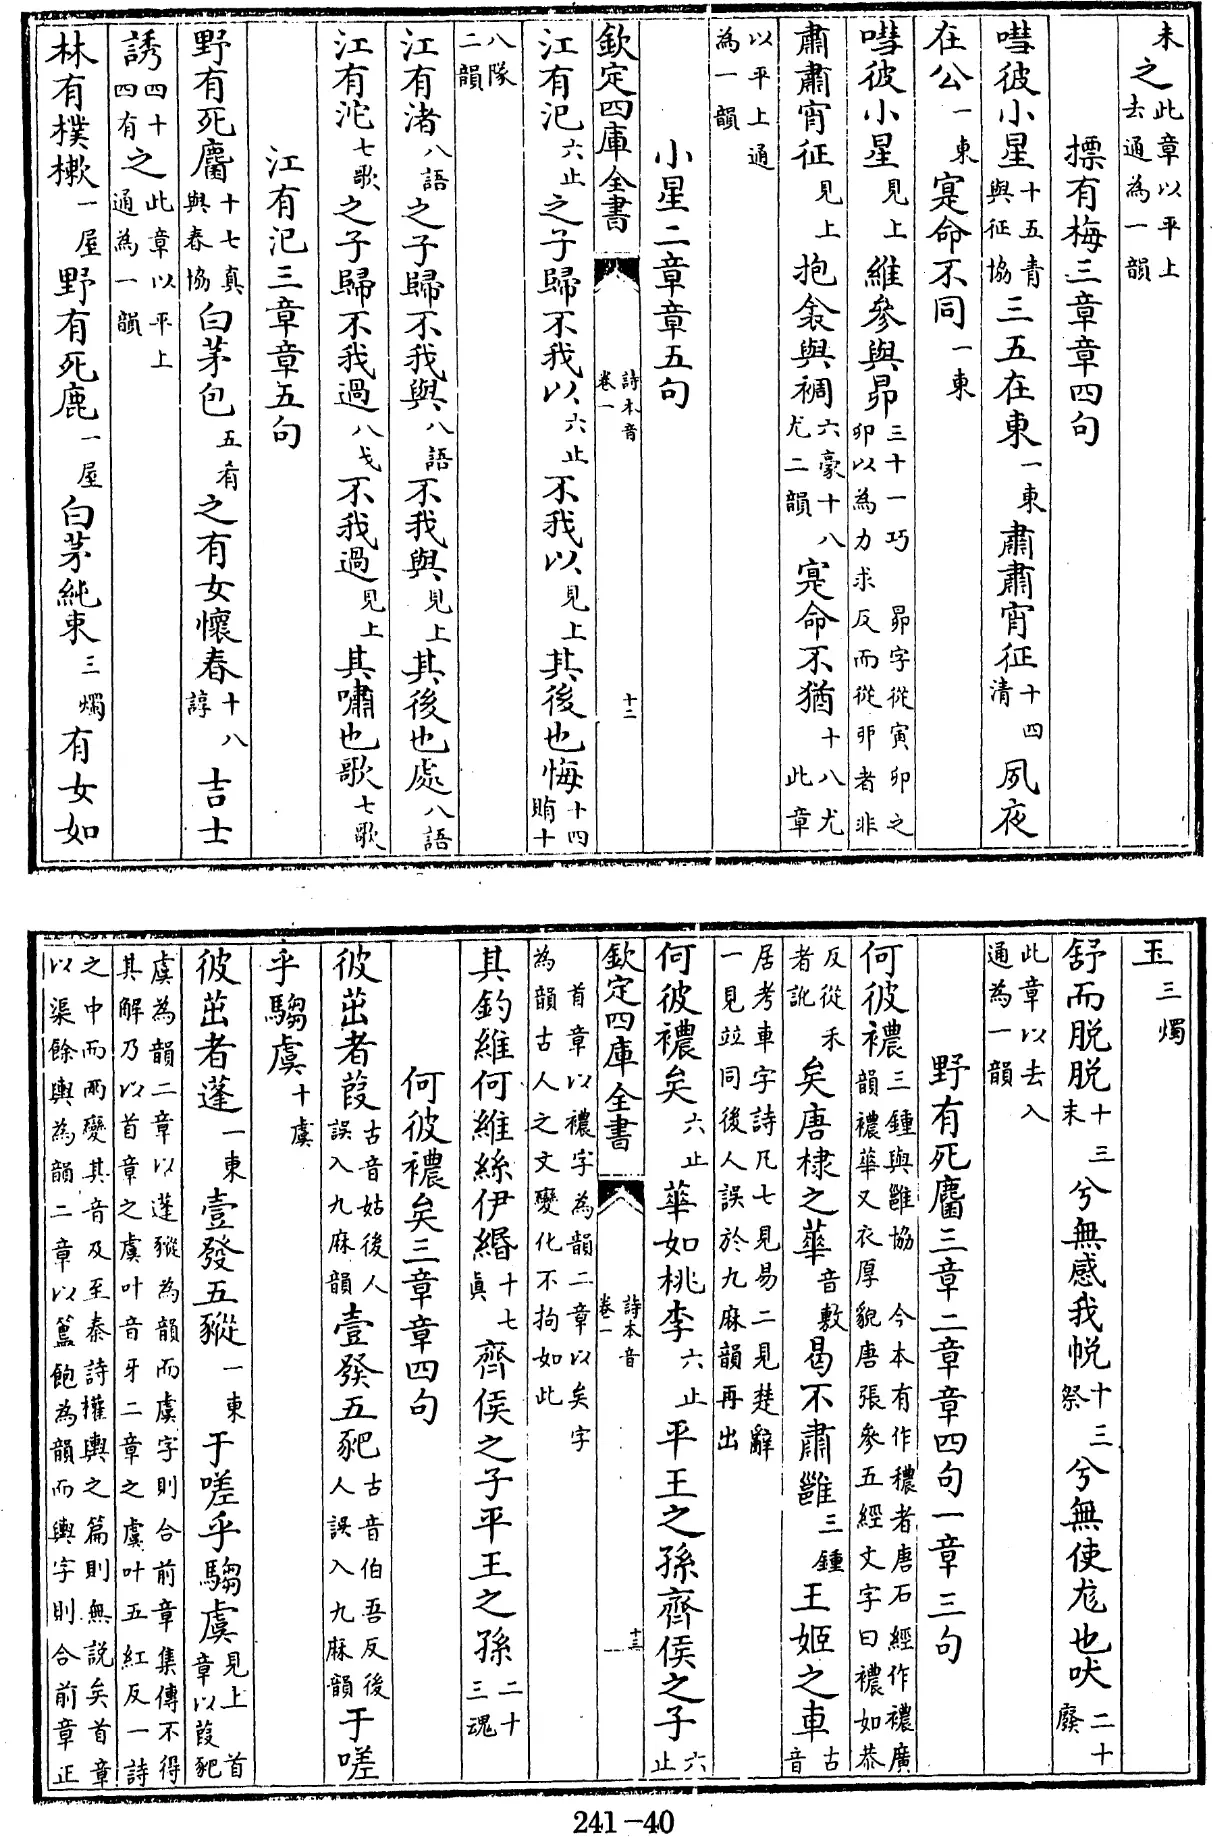 未之此章以平上去通為一韻
摽有梅三章章四句
嘒彼小星十五青與征協三五在東一東肅肅宵征十四清夙夜
在公一東寔命不同一東
嘒彼小星見上維參與昴三十一巧 昴字從寅卯之卯以為力求反而從丣者非
肅肅宵征見上抱衾與裯六豪十八尤二韻寔命不猶十八尤 此章
以平上通為一韻
小星二章章五句
欽定四庫全書 詩本音卷一 十二
江有汜六止之子歸不我以六止不我以見上其後也悔十四賄十
八隊二韻
江有渚八語之子歸不我與八語不我與見上其後也處八語
江有沱七歌之子歸不我過八戈不我過見上其嘯也歌七歌
江有汜三章章五句
野有死麕十七真與春協白茅包五肴之有女懷春十八諄吉士
誘四十四有之此章以平上通為一韻
林有樸樕一屋野有死鹿一屋白茅純束三燭有女如
玉三燭
舒而脫脫十三末兮無感我帨十三祭兮無使尨也吠二十廢
此章以去入通為一韻
野有死麕三章二章章四句一章三句
何彼襛三鍾與雝協 今本有作穠者唐石經作襛廣韻襛華又衣厚貌唐張參五經文字曰襛如恭
反從禾者訛矣唐棣之華音敷曷不肅雝三鍾王姬之車古音
居考車字詩凡七見易二見楚辭一見竝同後人誤於九麻韻再出
何彼襛矣六止華如桃李六止平王之孫齊侯之子六止
欽定四庫全書 詩本音卷一 十三
首章以襛字為韻二章以矣字為韻古人之文變化不拘如此
其釣維何維絲伊緡十七真齊侯之子平王之孫二十三魂
何彼襛矣三章章四句
彼茁者葭古音姑後人誤入九麻韻壹發五豝古音伯吾反後人誤入九麻韻于嗟
乎騶虞十虞
彼茁者蓬一東壹發五豵一東于嗟乎騶虞見上 首章以葭豝
虞為韻二章以蓬豵為韻而虞字則合前章集傳不得其解乃以首章之虞叶音牙二章之虞叶五紅反一詩
之中而兩變其音及至秦詩權輿之篇則無說矣首章以渠餘輿為韻二章以簋飽為韻而輿字則合前章正
241-40